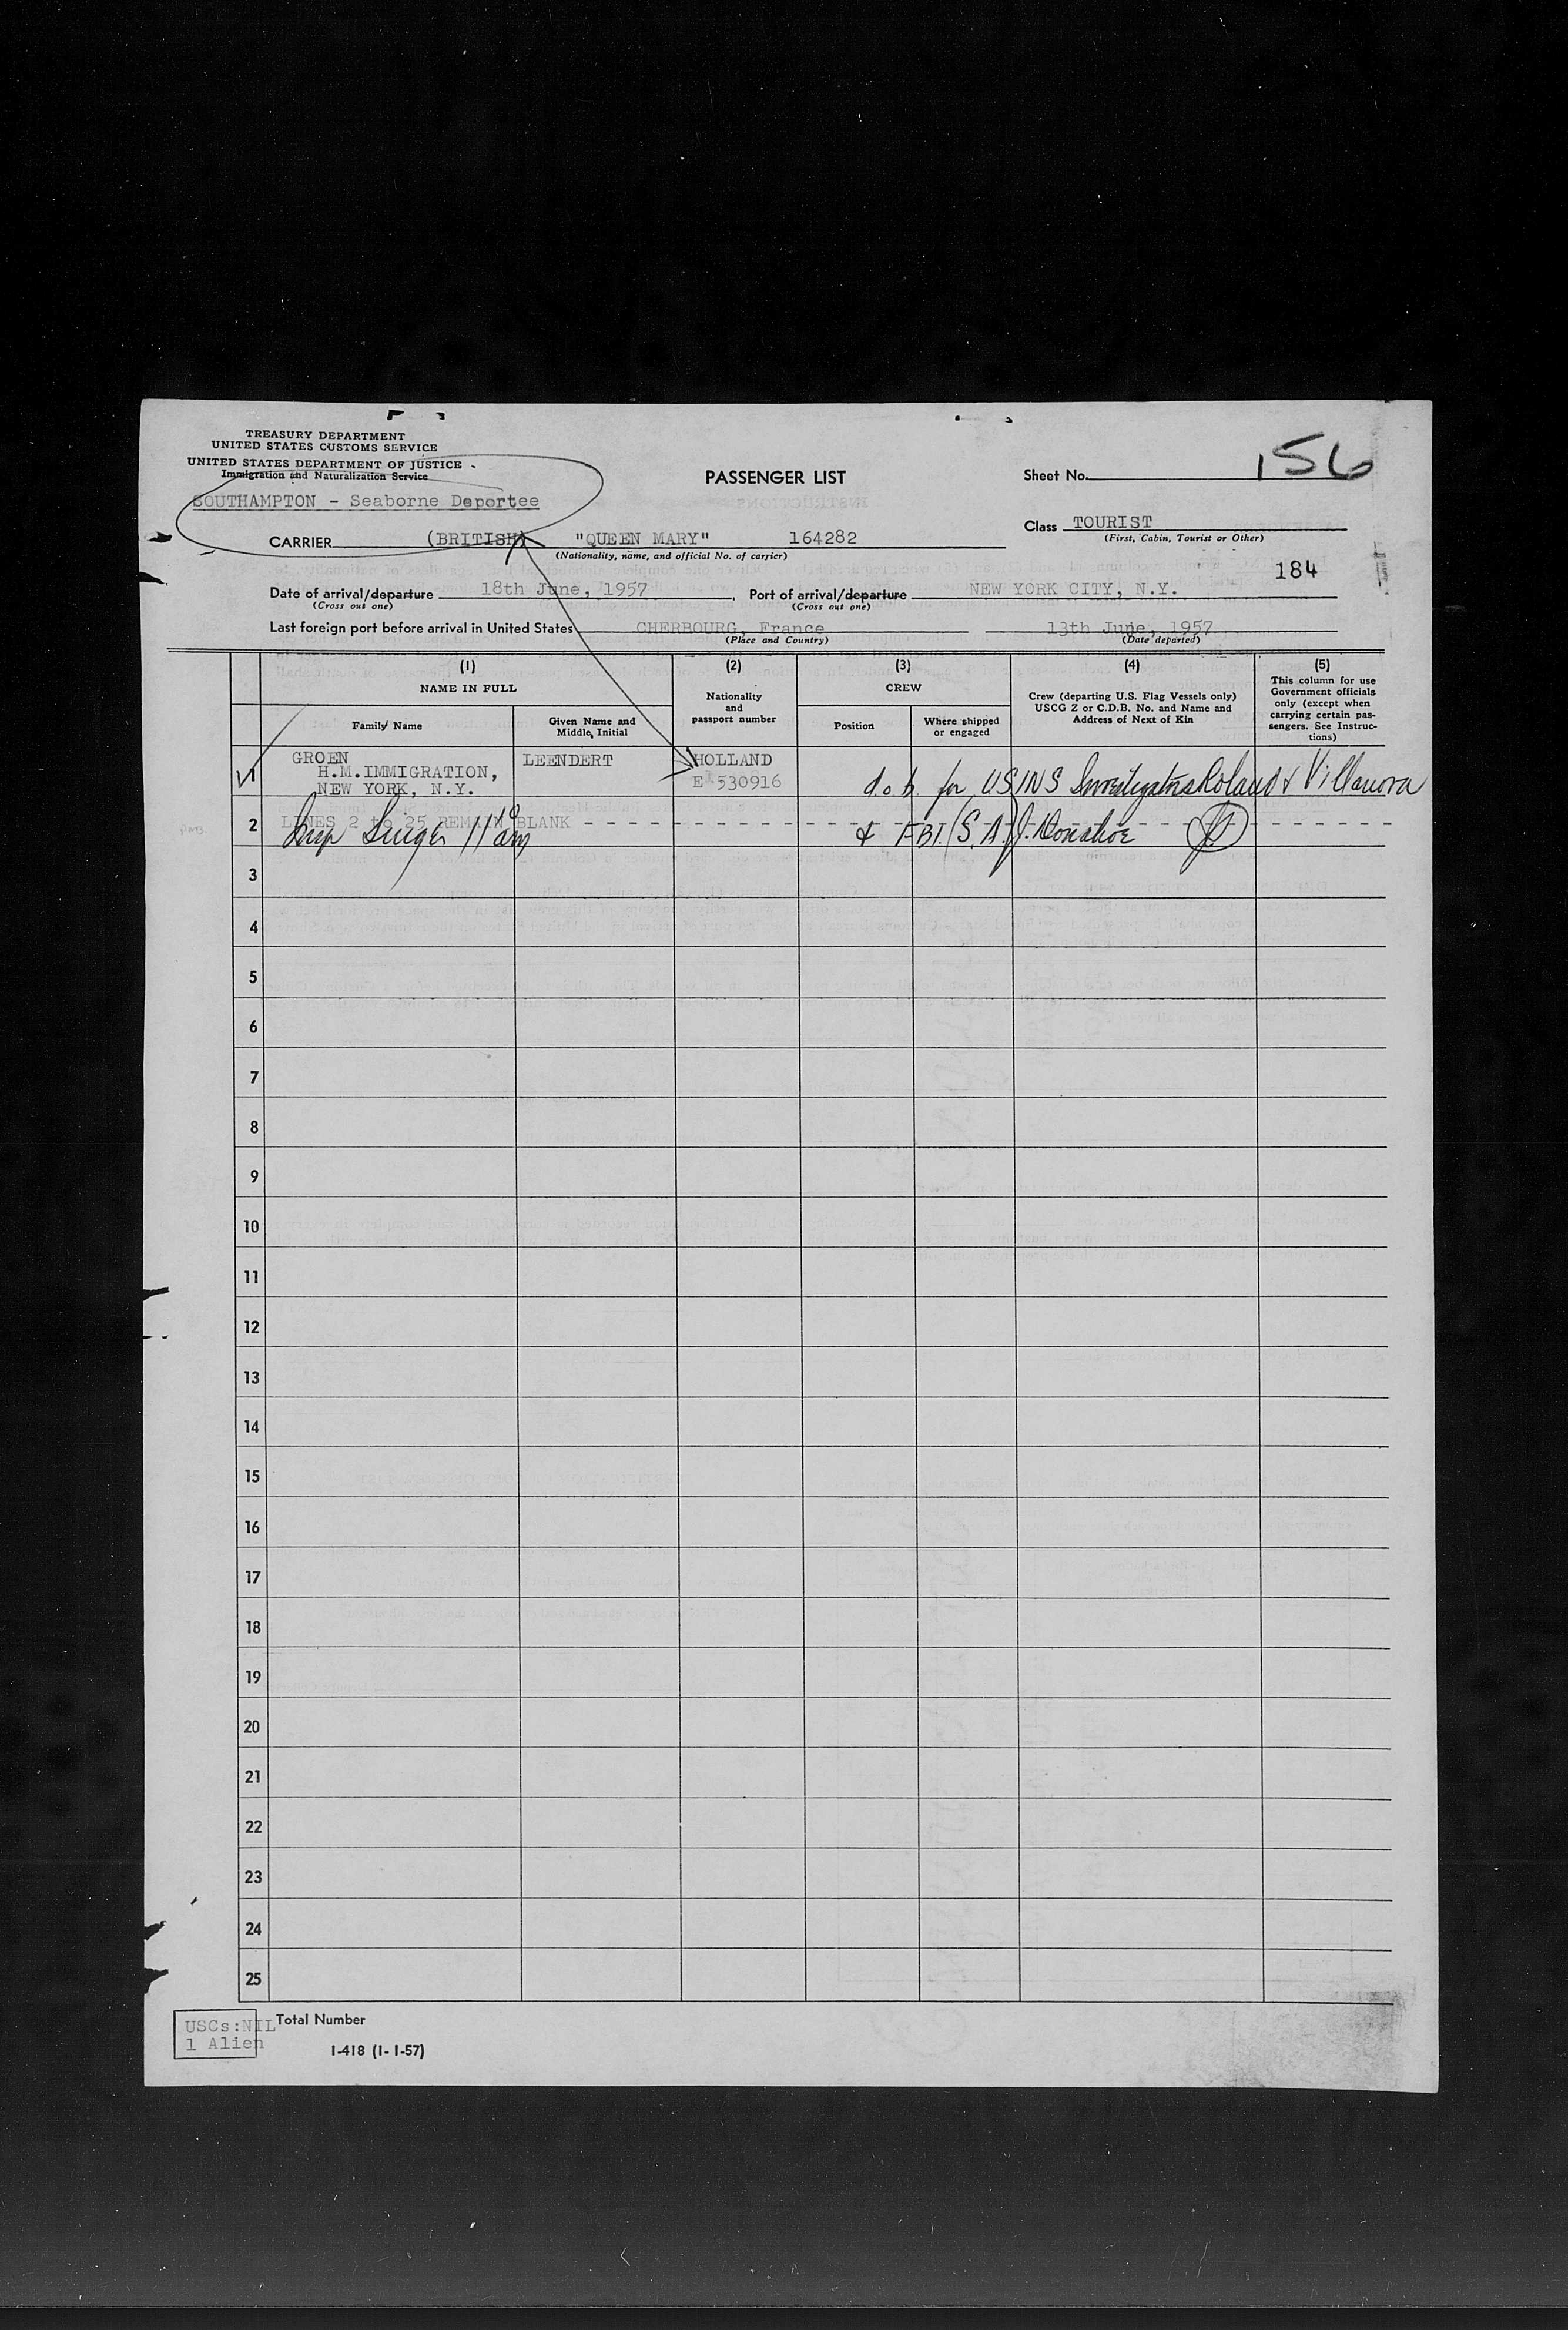 TREASURY DEPARTMENT
UNITED STATES CUSTOMS SERVICE
UNITED STATES DEPARTMENT OF JUSTICE
Immigration and Naturalization Service
PASSENGER LIST
Sheet No. 156
SOUTHAMPTON - Seaborne Deportee
Class TOURIST
(First, Cabin, Tourist or Other)
CARRIER (BRITISH) "QUEEN MARY" 164282
(Nationality, name, and official No. of carrier)
184
Date of arrival/departure 18th June, 1957, Port of arrival/departure NEW YORK CITY, N.Y.
(Cross out one) (Cross out one)
Last foreign port before arrival in United States CHERBOURG, France 13th June, 1957
(Place and Country) (Date departed)
(1) (2) (3) (4) (5)
NAME IN FULL
Family Name
Given Name and
Middle Initial
Nationality
and
passport number
CREW
Position
Where shipped
or engaged
Crew (departing U.S. Flag Vessels only)
USCG Z or C.D.B. No. and Name and
Address of Next of Kin
This column for use
Government officials
only (except when
carrying certain pas-
sengers. See Instruc-
tions)
1 GROEN LEENDERT HOLLAND
H.M.IMMIGRATION, E 530916
NEW YORK, N.Y.
d.o.b. for USINS Investigators Roland & Villanova
2 LINES 2 to 25 REMAIN BLANK - - - - - - - - - -
Insp 11 am
& FBI (S.A.) J. Donahoe
3
4
5
6
7
8
9
10
11
12
13
14
15
16
17
18
19
20
21
22
23
24
25
USCs:NIL
1 Alien
Total Number
I-418 (1-1-57)